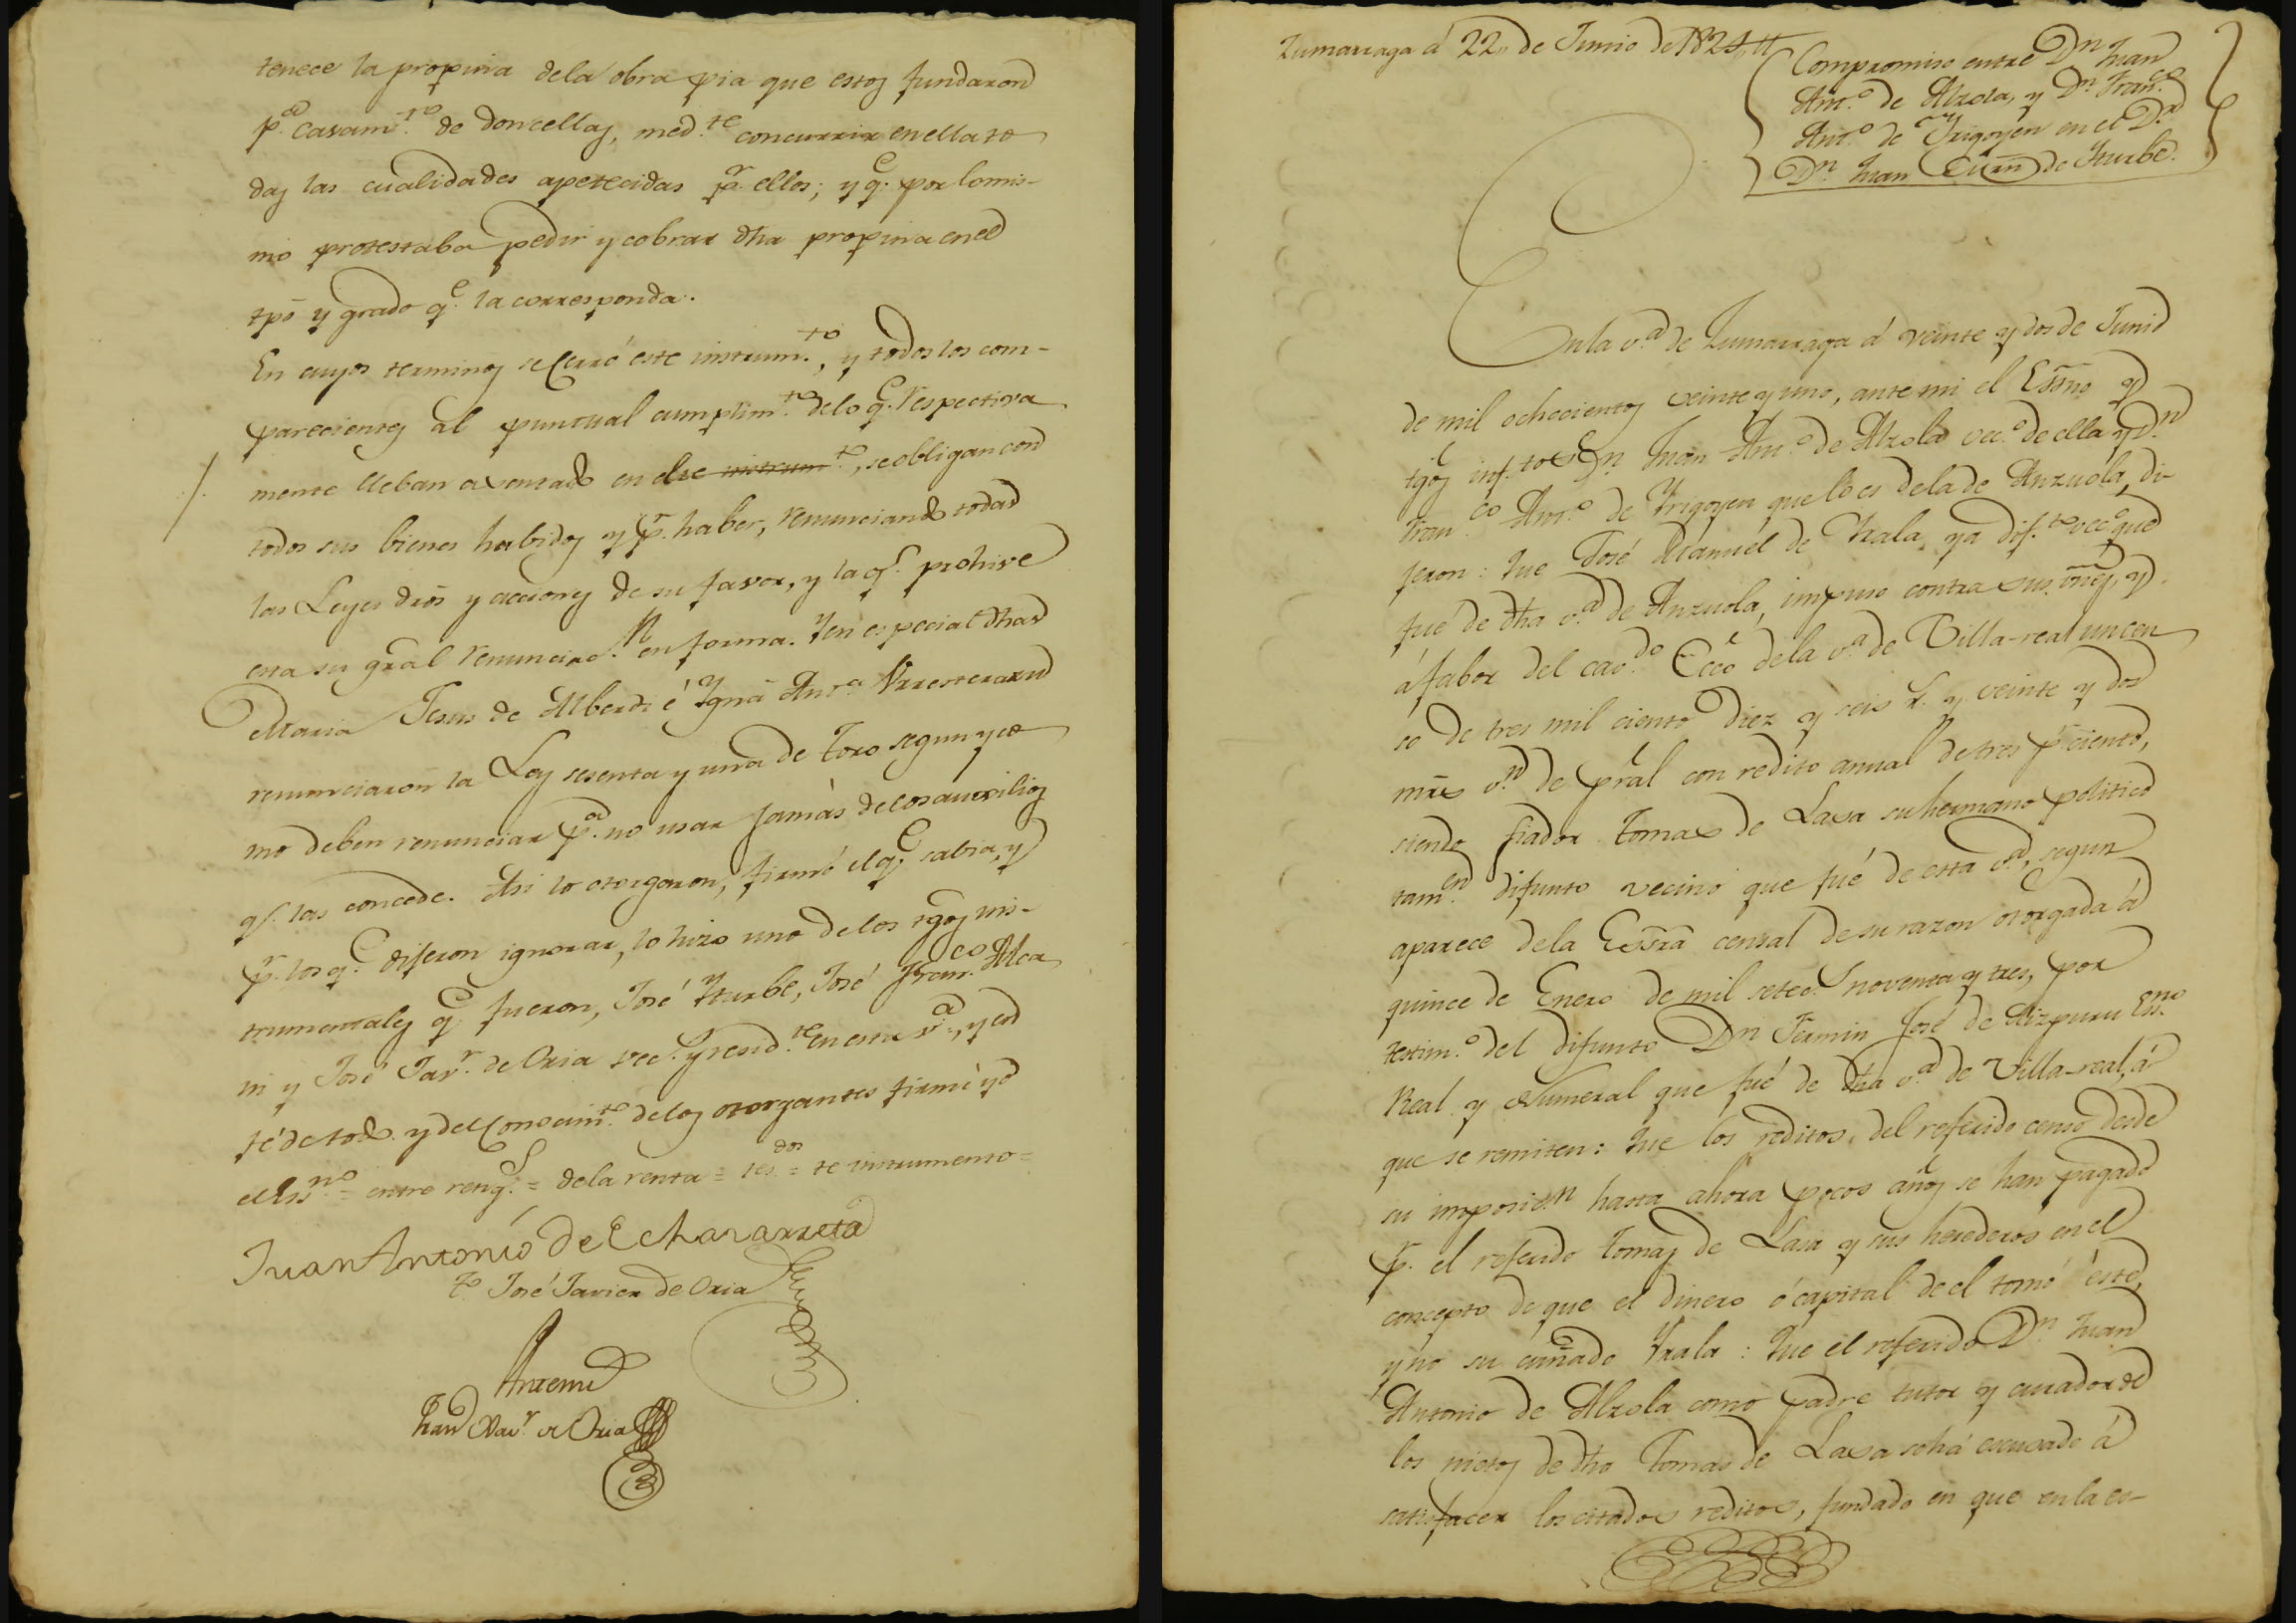 tenece la propina dela obra pia que estos fundaron
p.ª casam.to de doncellas, med.te concurrir en ella to
das las cualidades apetecidas p.r ellos; y q.e por lo mis-
mo protestaba pedir y cobrar dha propina en el
tpō y grado q.e la corresponda.
En cuyos terminos se cerró este instrum.to, y todos los com-
parecientes al puntual cumplim.to delo q.e respectiva
mente lleban asentado en el se obligan con
todos sus bienes habidos y p.r haber, renunciando todas
las Leyes drōs y acciones de su favor, y la q.e prohive
esta su grāl renunciac.n en forma. Y en especial dhas
Maria Jesus de Alberdi é Ygnā Ant.a Urresterazu
renunciaron la Ley sesenta y una de Toro segun y co
mo deben renunciar p.a no usar jamàs de los auxilios
q.e las concede. Asi lo otorgaron, firmó el q.e sabia, y
p.r los q.e dijeron ignorar, lo hizo uno de los tgos ins-
trumentales q.e fueron, José Yturbe, José Fran.co Alca
ni y José Jav.r de Oria vec.s y resid.te en esta v.a, y en
fé de todo y del conocim.to delos otorgantes firmé yo
el Ess.no = entre reng.s = dela renta = tes.dos = te instrumento =
Juan Antonio de Echavarreta
t.o José Javier de Oria
Antemi
Fran Xav.r de Oria
Zumarraga á 22,, de Junio de 1821,,
Compromiso entre Dn Juan
Ant.o de Alzola, y Dn Fran.co
Ant.o de Yrigoyen en el D.r
Dn Juan de Yturbe.
En la v.a de Zumarraga á veinte y dos de Junio
de mil ochocientos veinte y uno, ante mi el Essno y
tgōs inf.tos Dn Juan Ant.o de Alzola vec.o de ella y Dn
Fran.co Ant.o de Yrigoyen que lo es dela de Anzuola, di-
jeron: Que José Manuel de Yrala, ya dif.to vec.o que
fué de dha v.a de Anzuola, impuso contra sus vnēs, y
á fabor del cav.do Ecc.o dela v.a de Villa-real un cen
so de tres mil ciento diez y seis r.s y veinte y dos
mrs v.n de prāl con redito anual de tres p.r ciento,
siendo fiador Tomas de Lasa su hermano politico
tam.en difunto vecino que fué de esta v.a, segun
aparece dela Essrā censal de su razon otorgada á
quince de Enero de mil setec.s noventa y tres, por
testim.o del difunto Dn Fermin José de Aizpuru Ess.no
Real y Numeral que fué de dha v.a de Villa-real, á
que se remiten: Que los reditos del referido censo desde
su imposic.n hasta ahora pocos años se han pagado
p.r el referido Tomas de Lasa y sus herederos en el
concepto de que el dinero ó capital de el tomó éste,
y no su cuñado Yrala: Que el referido Dn Juan
Antonio de Alzola como padre tutor y curador de
los nietos de dho Tomas de Lasa se há escusado á
satisfacer los citados reditos, fundado en que en la es-